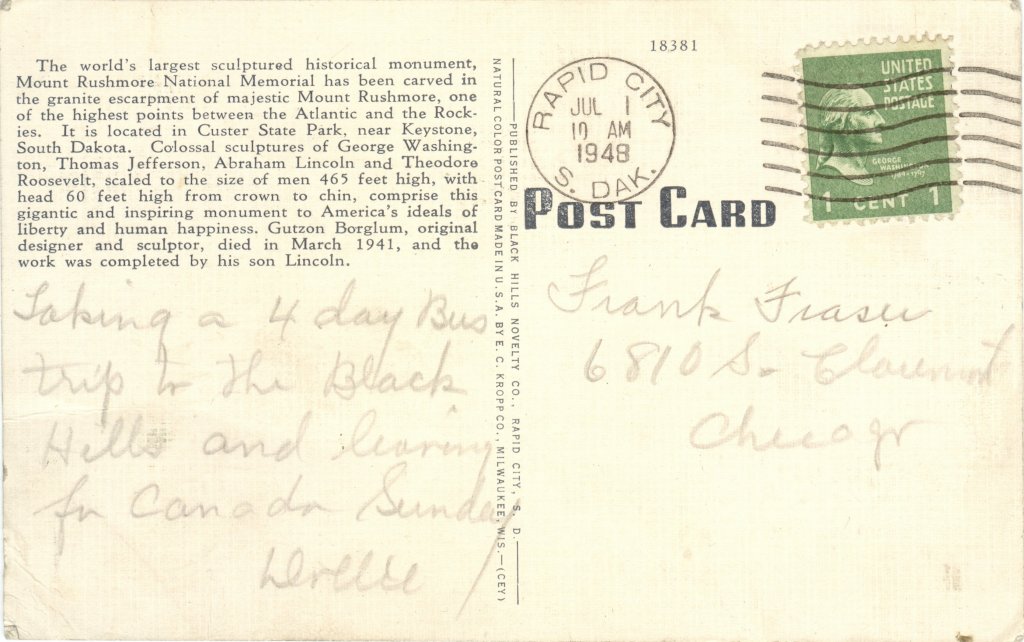 18381
The world's largest sculptured historical monument,
Mount Rushmore National Memorial has been carved in
the granite escarpment of majestic Mount Rushmore, one
of the highest points between the Atlantic and the Rock-
ies. It is located in Custer State Park, near Keystone,
South Dakota. Colossal sculptures of George Washing-
ton, Thomas Jefferson, Abraham Lincoln and Theodore
Roosevelt, scaled to the size of men 465 feet high, with
head 60 feet high from crown to chin, comprise this
gigantic and inspiring monument to America's ideals of
liberty and human happiness. Gutzon Borglum, original
designer and sculptor, died in March 1941, and the
work was completed by his son Lincoln.
Taking a 4 day Bus
trip to the Black
Hills and leaving
for Canada Sunday
NATURAL COLOR POST CARD MADE IN U.S.A. BY E. C. KROPP CO., MILWAUKEE, WIS.—(CEY)
PUBLISHED BY BLACK HILLS NOVELTY CO., RAPID CITY, S. D.
RAPID CITY
JUL 1
10 AM
1948
S. DAK.
UNITED
STATES
POSTAGE
GEORGE
1 CENT 1
POST CARD
Frank Fraser
6810 S. Claremont
Chicago